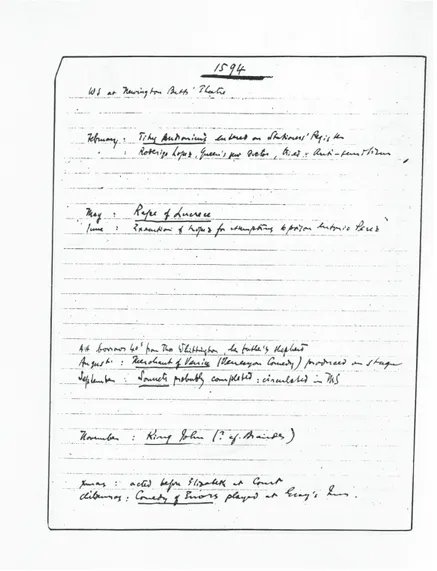 1594
WS at Newington Butts' Theatre
February : Titus Andronicus entered on Stationers' Register
: Roderigo Lopez, Queen's Jew Doctor, tried : Anti-semitism
May : Rape of Lucrece
June : Execution of Lopez for attempting to poison Antonio Perez
AH borrows 40s from Tho Whittington, her father's shepherd
August : Merchant of Venice (Venesyon Comedy) produced on stage
September : Sonnets probably completed : circulated in MS
November : King John (? of
Xmas : acted before Elizabeth at Court
Comedy of Errors played at Gray's Inn.